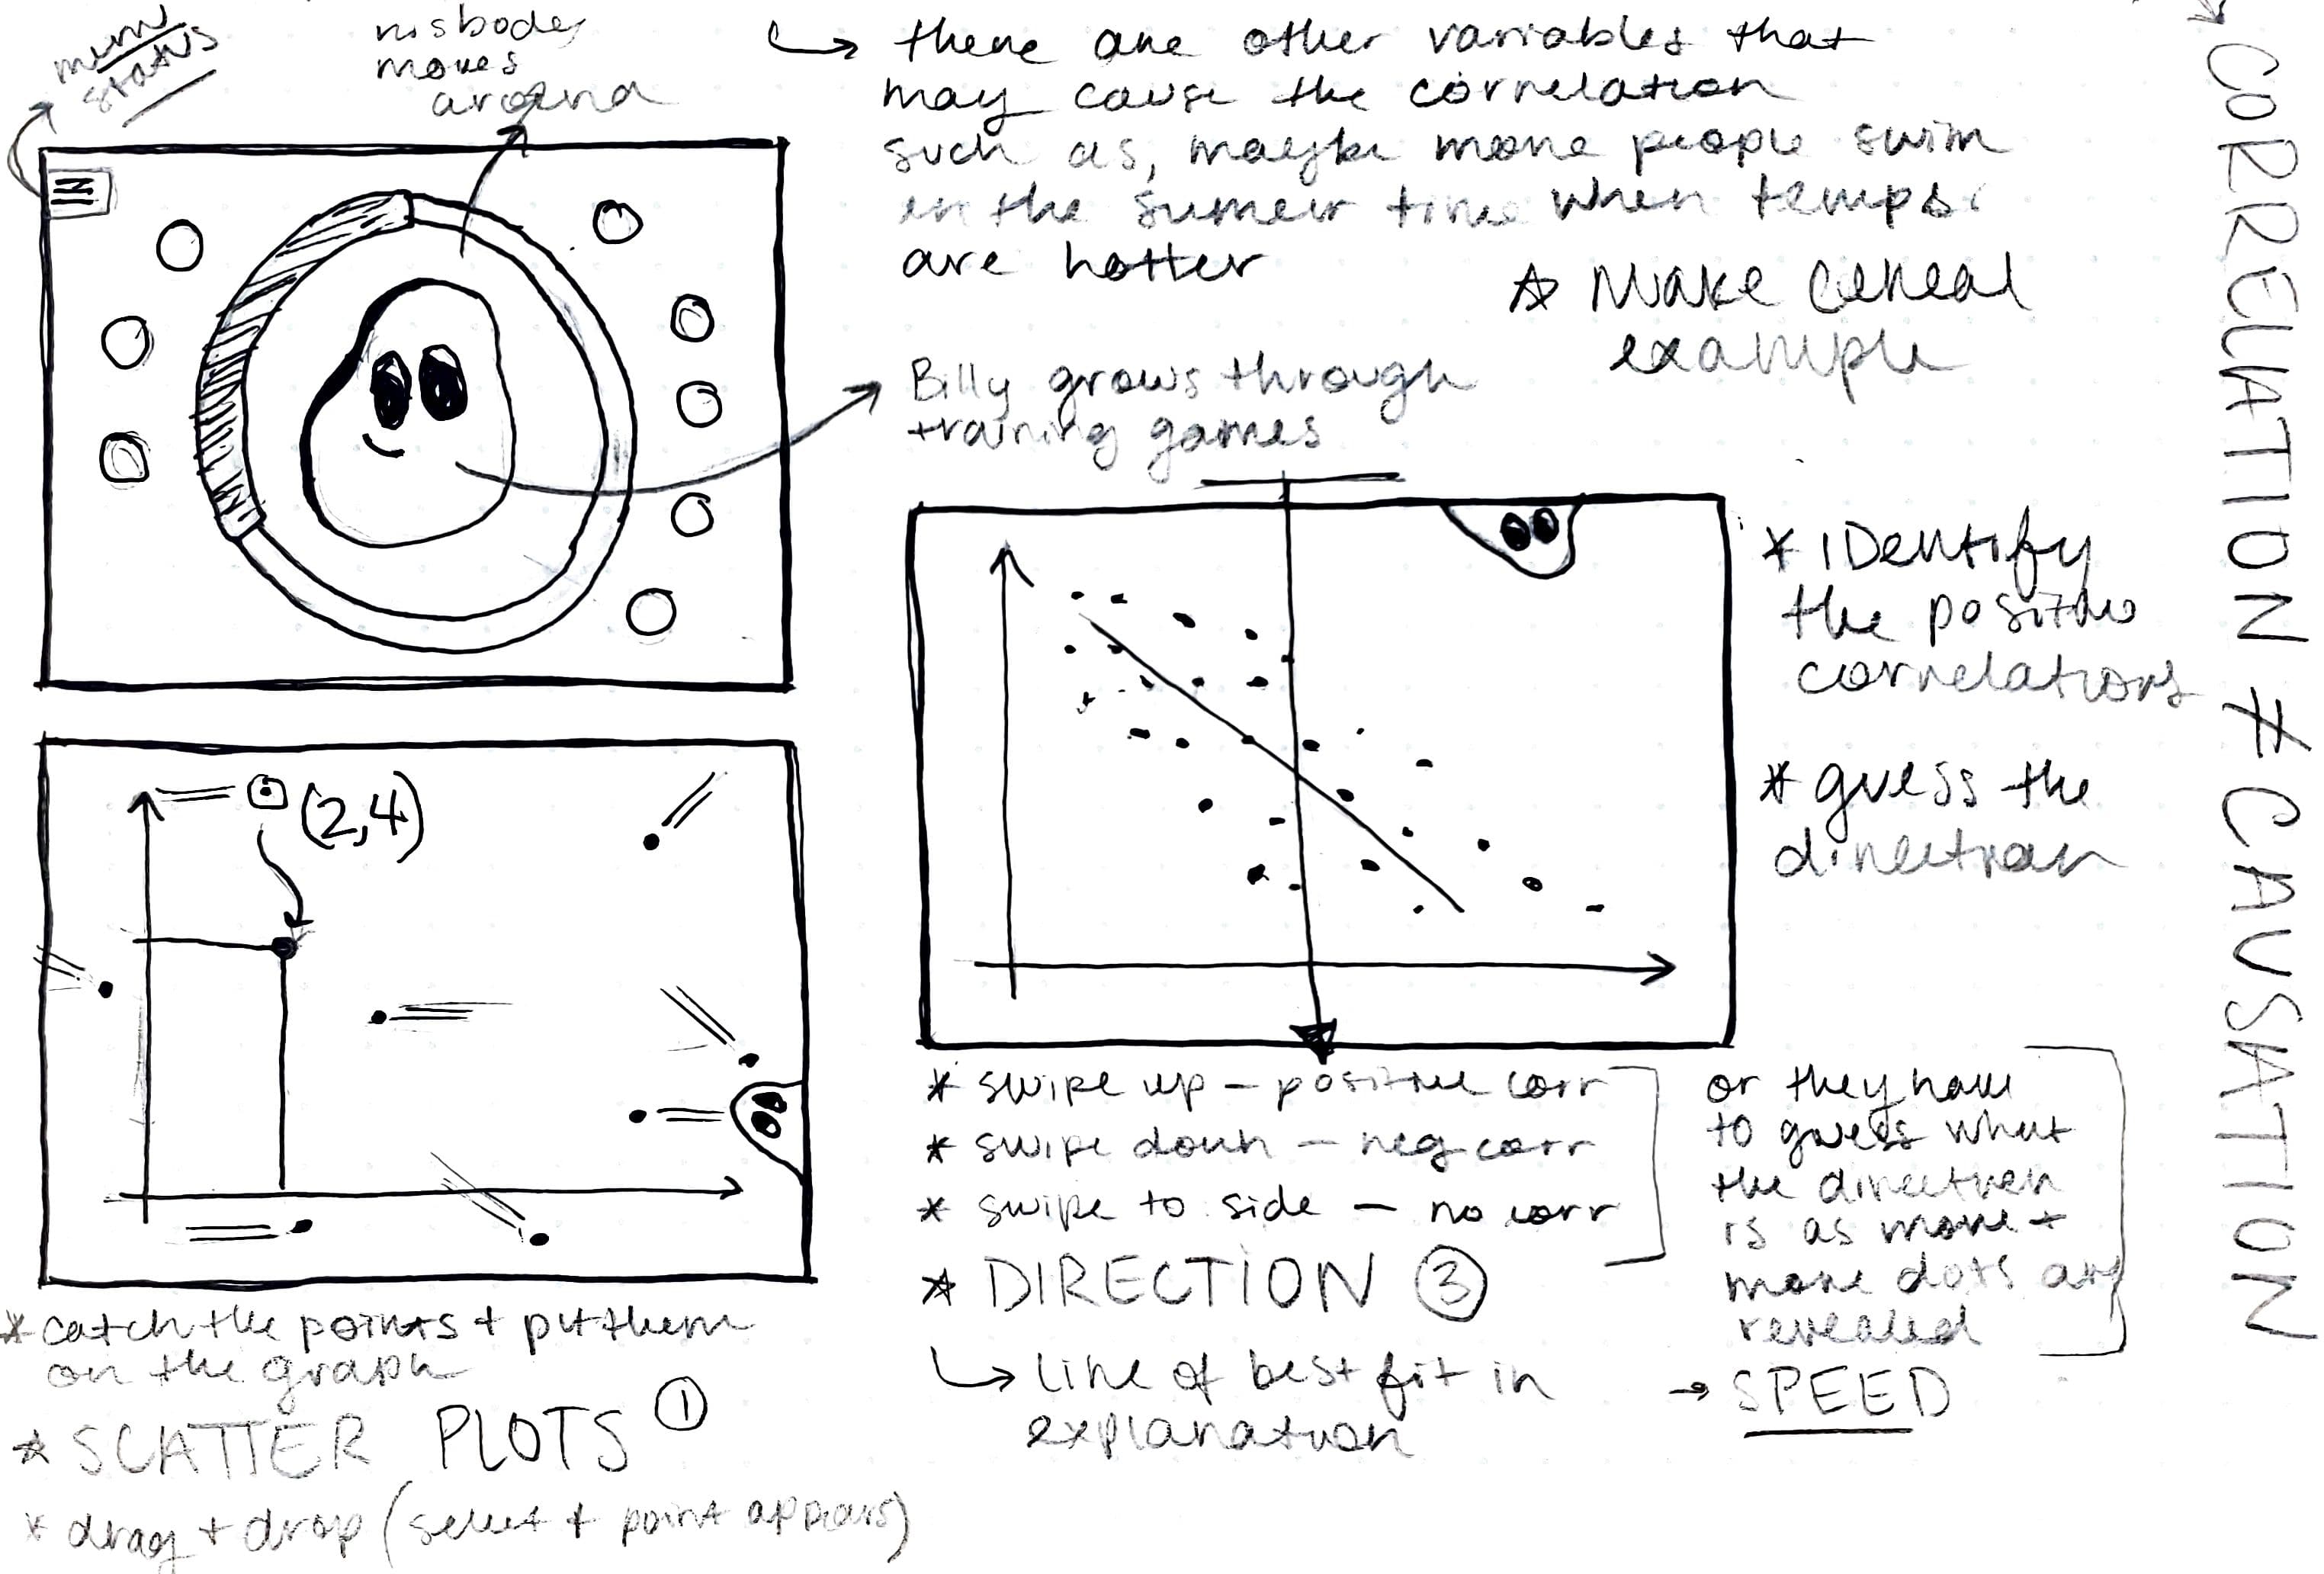 status
moves
around
there are other variables that
may cause the correlation
such as, maybe more people swim
in the sumer time when temps
are hotter
☆ Make cereal
example
Billy grows through
training games
* IDentify
the positive
correlations
* guess the
direction
(2,4)
* catch the points + put them
on the graph
* SCATTER PLOTS ①
* drag + drop (select + point appears)
* swipe up – positive corr
* swipe down – neg corr
* swipe to side – no corr
* DIRECTION ③
↳ line of best fit in
explanation
or they have
to guess what
the direction
is as more +
more dots are
revealed
→ SPEED
CORRELATION ≠ CAUSATION